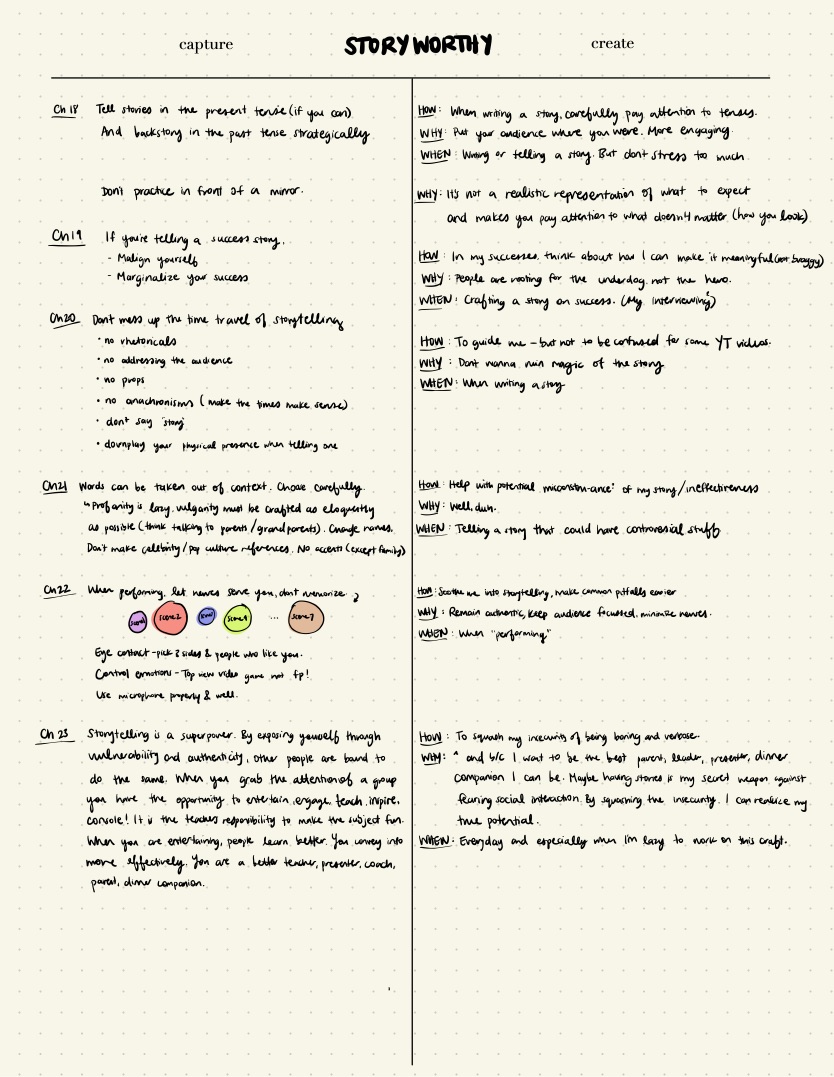 capture
STORYWORTHY
create
Ch 18 Tell stories in the present tense (if you can)
And backstory in the past tense strategically
Don't practice in front of a mirror.
Ch 19 If you're telling a success story,
- Malign yourself
- Marginalize your success
Ch20 Dont mess up the time travel of storytelling
• no rhetoricals
• no addressing the audience
• no props
• no anachronisms (make the times make sense)
• don't say "story"
• downplay your physical presence when telling one
Ch21 Words can be taken out of context. Choose carefully.
↳ Profanity is lazy. vulgarity must be crafted as eloquently
as possible (think talking to parents/grandparents). Change names.
Don't make celebrity/pop culture references. No accents (except family)
Ch22 When performing, let nerves serve you, dont memorize
scene2
scene4
...
scene7
Eye contact - pick 3 sides & people who like you.
Control emotions - Top view video game not fp!
Use microphone properly & well.
Ch 23 Storytelling is a superpower. By exposing yourself through
vulnerability and authenticity, other people are bound to
do the same. When you grab the attention of a group
you have the opportunity to entertain, engage, teach, inspire,
console! It is the teachers responsibility to make the subject fun.
When you are entertaining, people learn better. You convey info
more effectively. You are a better teacher, presenter, coach,
parent, dinner companion.
HOW: When writing a story, carefully pay attention to tenses.
WHY: Put your audience where you were. More engaging.
WHEN: Writing or telling a story. But dont stress too much
WHY: It's not a realistic representation of what to expect
and makes you pay attention to what doesn't matter (how you look)
HOW: In my successes, think about how I can make it meaningful (not braggy)
WHY: People are rooting for the underdog not the hero.
WHEN: Crafting a story on success. (My interviewing)
HOW: To guide me - but not to be confused for some YT videos.
WHY: Dont wanna ruin magic of the story
WHEN: When writing a story
HOW: Help with potential of my story/ineffectiveness
WHY: Well, duh.
WHEN: Telling a story that could have controversial stuff
HOW: Soothe me into storytelling, make common pitfalls easier
WHY: Remain authentic, keep audience focussed, minimize nerves.
WHEN: When "performing"
HOW: To squash my insecurity of being boring and verbose.
WHY: ^ and b/c I want to be the best parent, leader, presenter, dinner
companion I can be. Maybe having stories is my secret weapon against
fearing social interaction. By squashing the insecurity. I can realize my
true potential.
WHEN: Everyday and especially when I'm lazy to work on this craft.